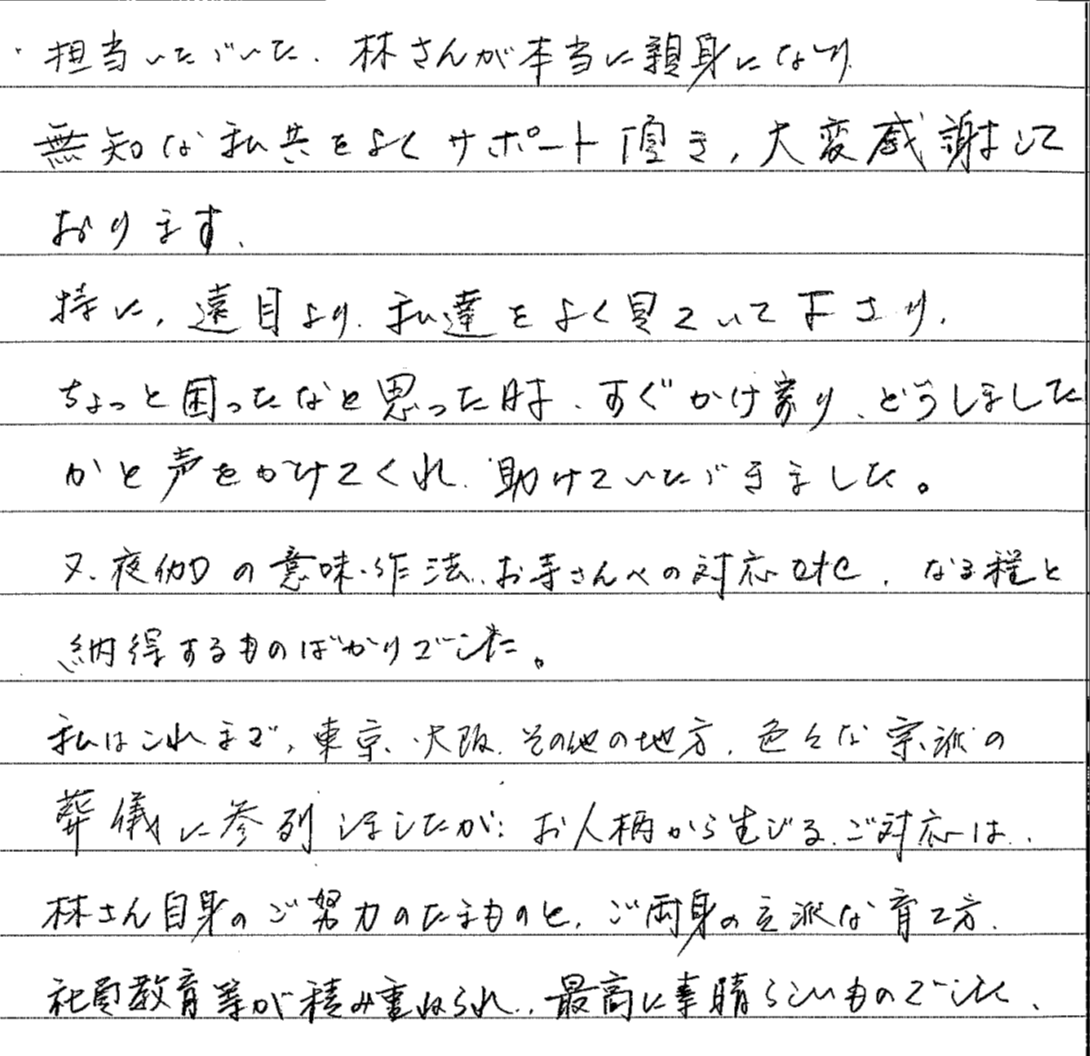 ・担当いただいた、林さんが本当に親身になり、
無知な私共をよくサポート頂き、大変感謝して
おります、
特に、遠目より、私達をよく見ていて下さり、
ちょっと困ったなと思った時、すぐかけ寄り、どうしました
かと声をかけてくれ、助けていただきました。
又、夜伽の意味・作法、お寺さんへの対応etc、なる程と
納得するものばかりでした。
私はこれまで、東京、大阪、その他の地方、色々な宗派の
葬儀に参列しましたが、お人柄から生じる、ご対応は、
林さん自身のご努力のたまものと、ご両身の立派な育て方、
社員教育等が積み重ねられ、最高に素晴らしいものでした、